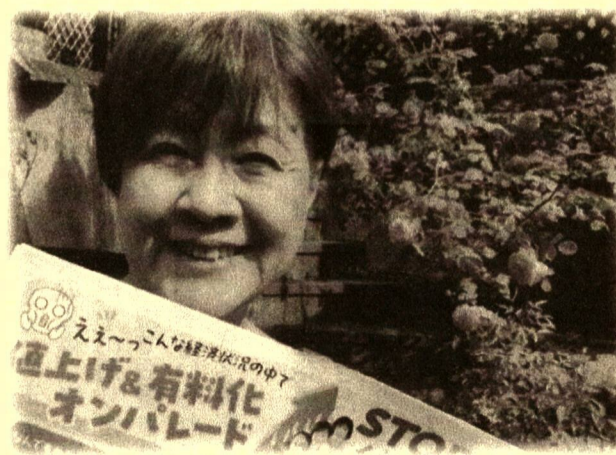 ええ〜っこんな経済状況の中で
値上げ&有料化
オンパレード
STO